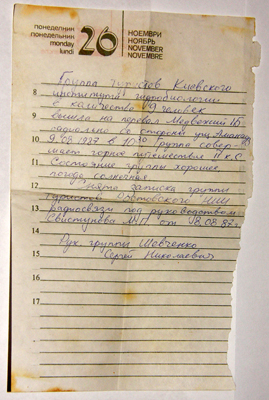 понеделник
понедельник
monday
lundi
26
НОЕМВРИ
НОЯБРЬ
NOVEMBER
NOVEMBRE
Группа туристов Киевского
8 института гидробиологии
в количестве 9 человек
9 вышла на перевал Медвежий 1Б
со стороны
10 9.08.1987 в 10 30 Группа совер-
шает горное путешествие II к.с.
11 Состояние группы хорошее,
погода солнечная.
12 Снята записка группы
туристов НИИ
13 Радиосвязи под руководством
от 18.08.87 г.
14
Рук. группы Шевченко
15 Сергей Николаевич
16
17